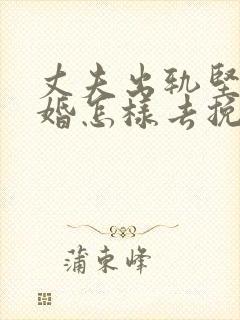 丈夫出轨坚
婚怎样去挽
蒲束峰